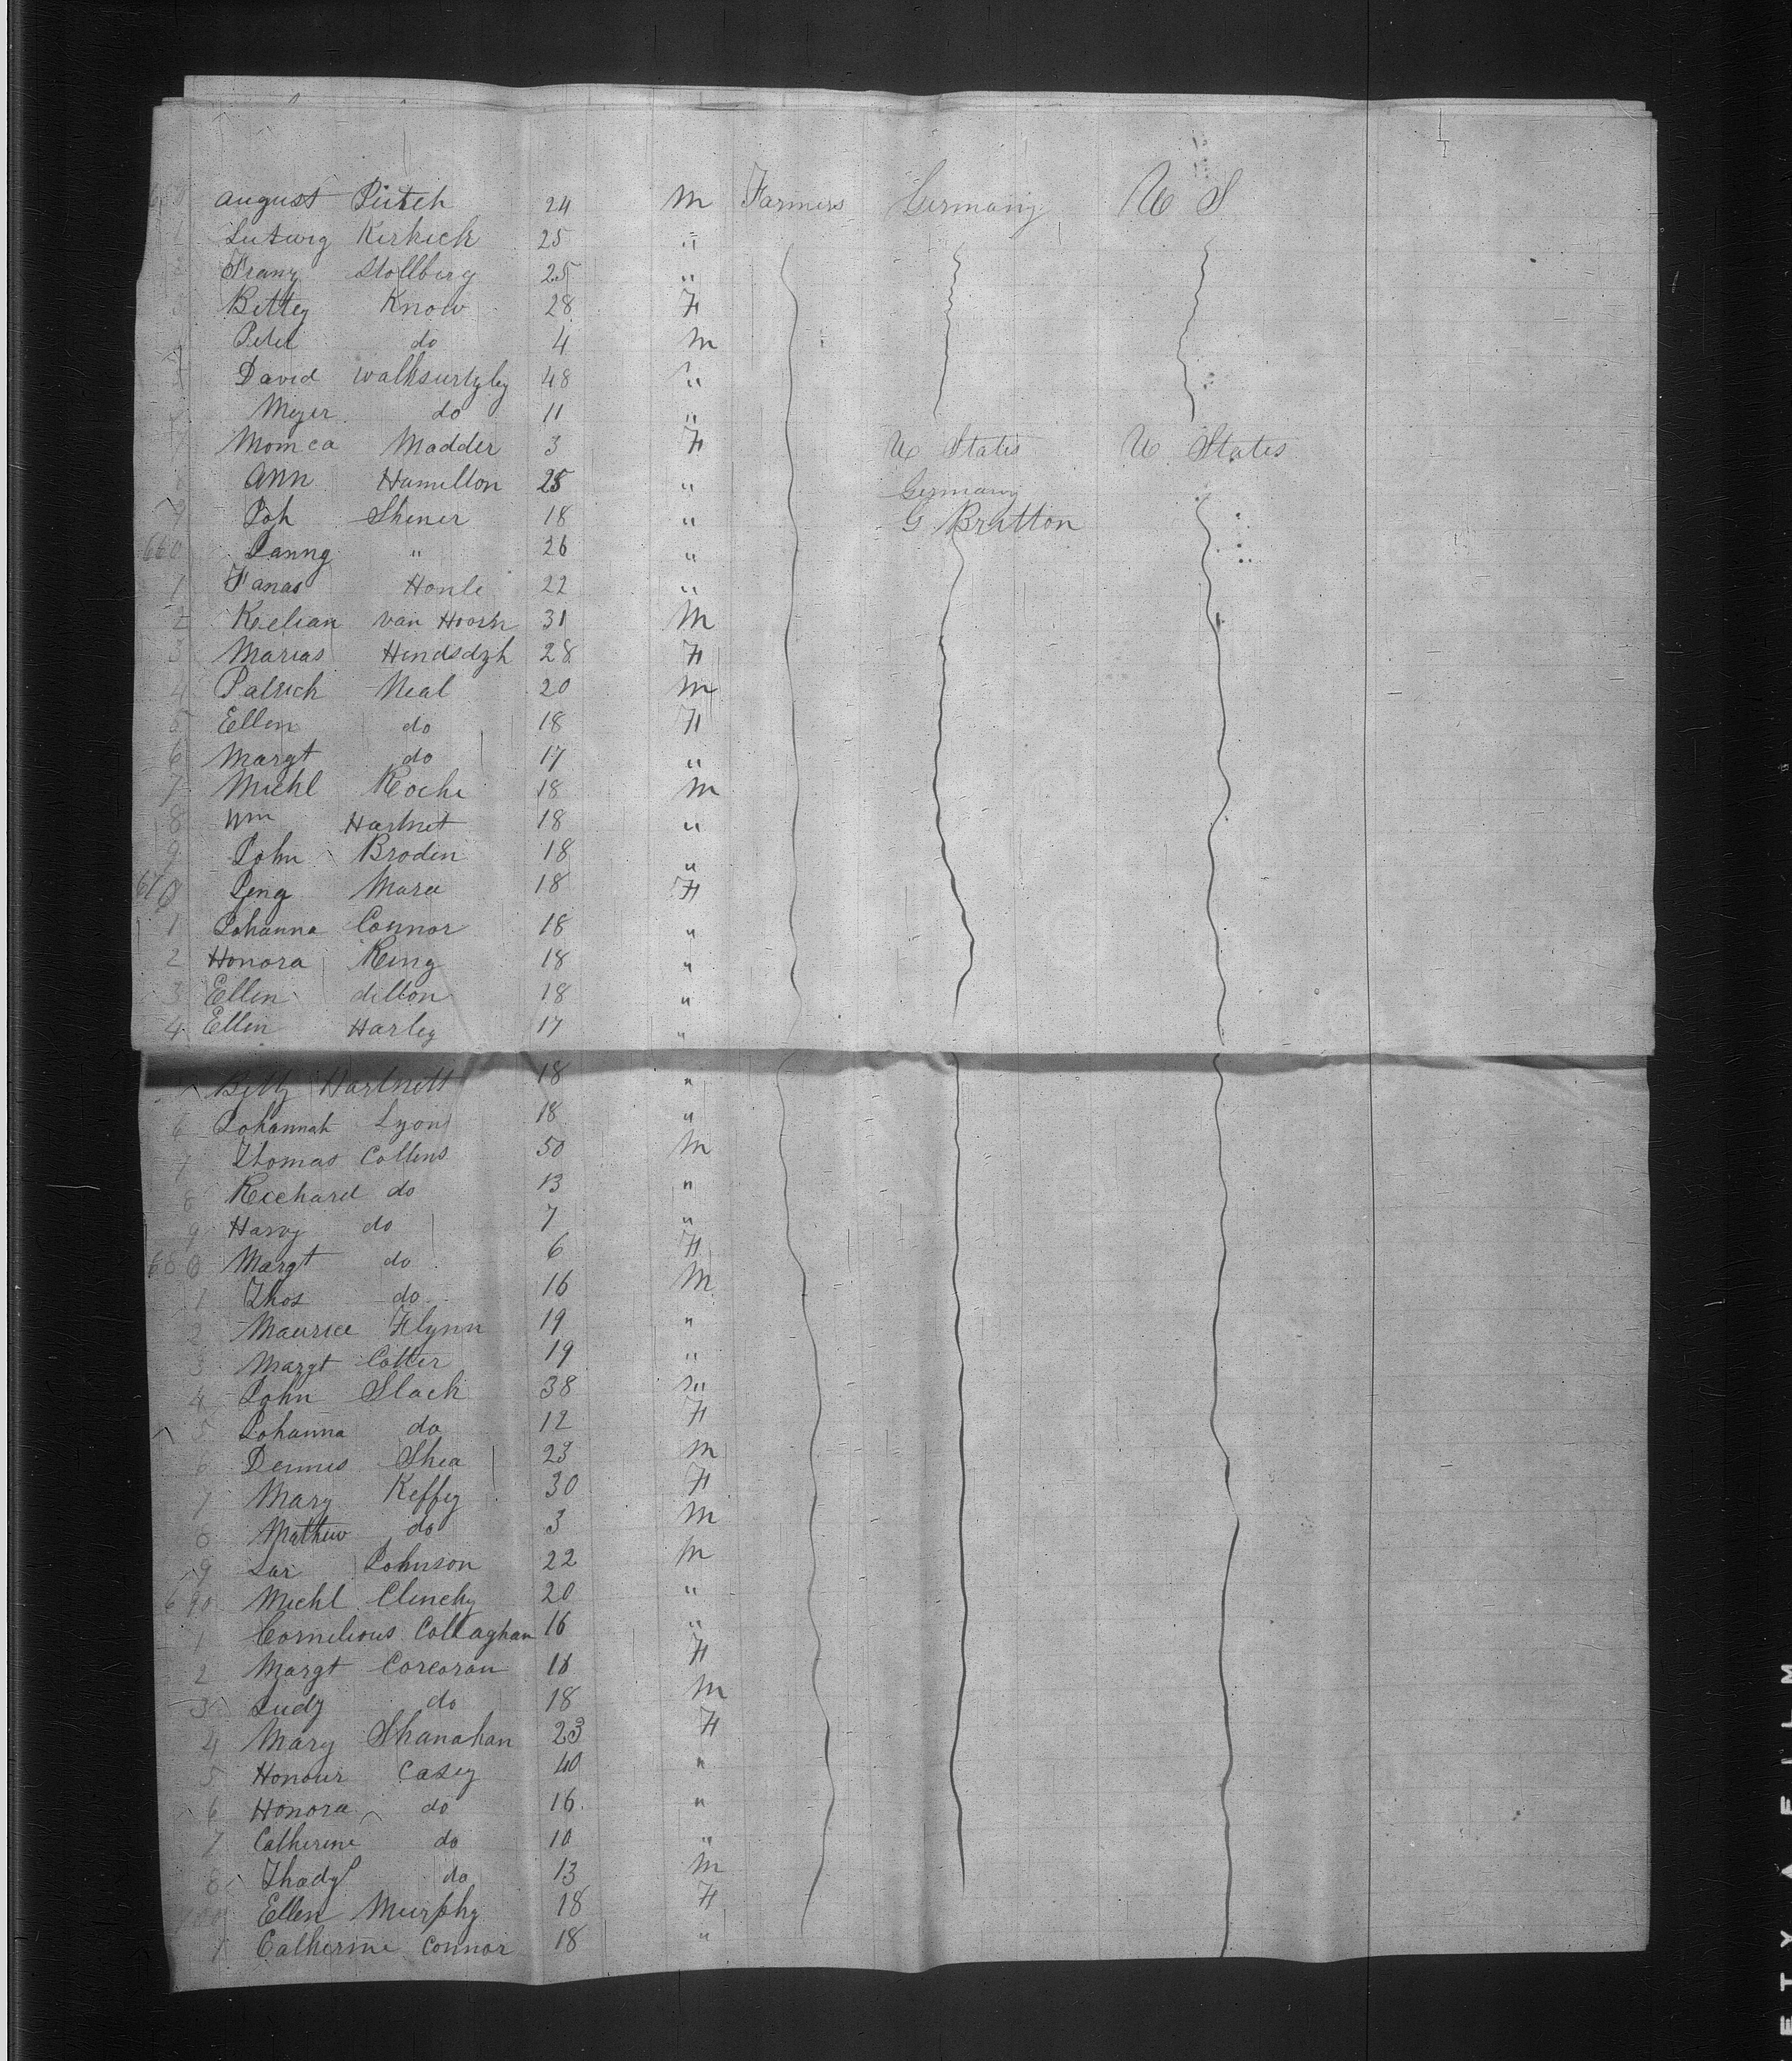 August Peitch 24 M Farmers Germany U S
1 Lutwig Kirkick 25 "
2 Franz Stollberg 25 "
3 Bettey Know 28 F
Peter do 4 M
David 48 "
Meyer do 11 "
7 Momca Madder 3 F U States U States
8 Ann Hamilton 28 " Germany
9 Joh Shener 18 " G Britton
660 Janng " 26 "
1 Fanas Honle 22 "
2 Keelian van Hoorn 31 M
3 Marias Hendsdzh 28 F
4 Patrick Neal 20 M
5 Ellen do 18 F
6 Margt do 17 "
7 Michl Roche 18 M
8 Wm Hartnet 18 "
9 John Broden 18 "
670 Jeng Mara 18 F
1 Johanna Connor 18 "
2 Honora King 18 "
3 Ellen dillon 18 "
4 Ellen Harley 17 "
Betty Hartnett 18 "
6 Johannah Lyons 18 "
7 Thomas Collins 50 M
8 Reichard do 13 "
9 Harry do 7 "
680 Margt do 6 F
1 Thos do 16 M
2 Maurice Flynn 19 "
3 Margt Cotter 19 "
4 John Slack 38 "
5 Johanna do 12 F
6 Dennis Shea 23 M
7 Mary Keffey 30 F
8 Mathew do 3 M
9 Lar Johnson 22 M
690 Michl Clinchy 20 "
1 Cornelious Collaghan 16 "
2 Margt Corcoran 16 F
3 Judy do 18 M
4 Mary Shanahan 23 F
5 Honour Casey 40 "
6 Honora do 16 "
7 Catherine do 10 "
8 Thady do 13 M
Ellen Murphy 18 F
1 Catherine Connor 18 "